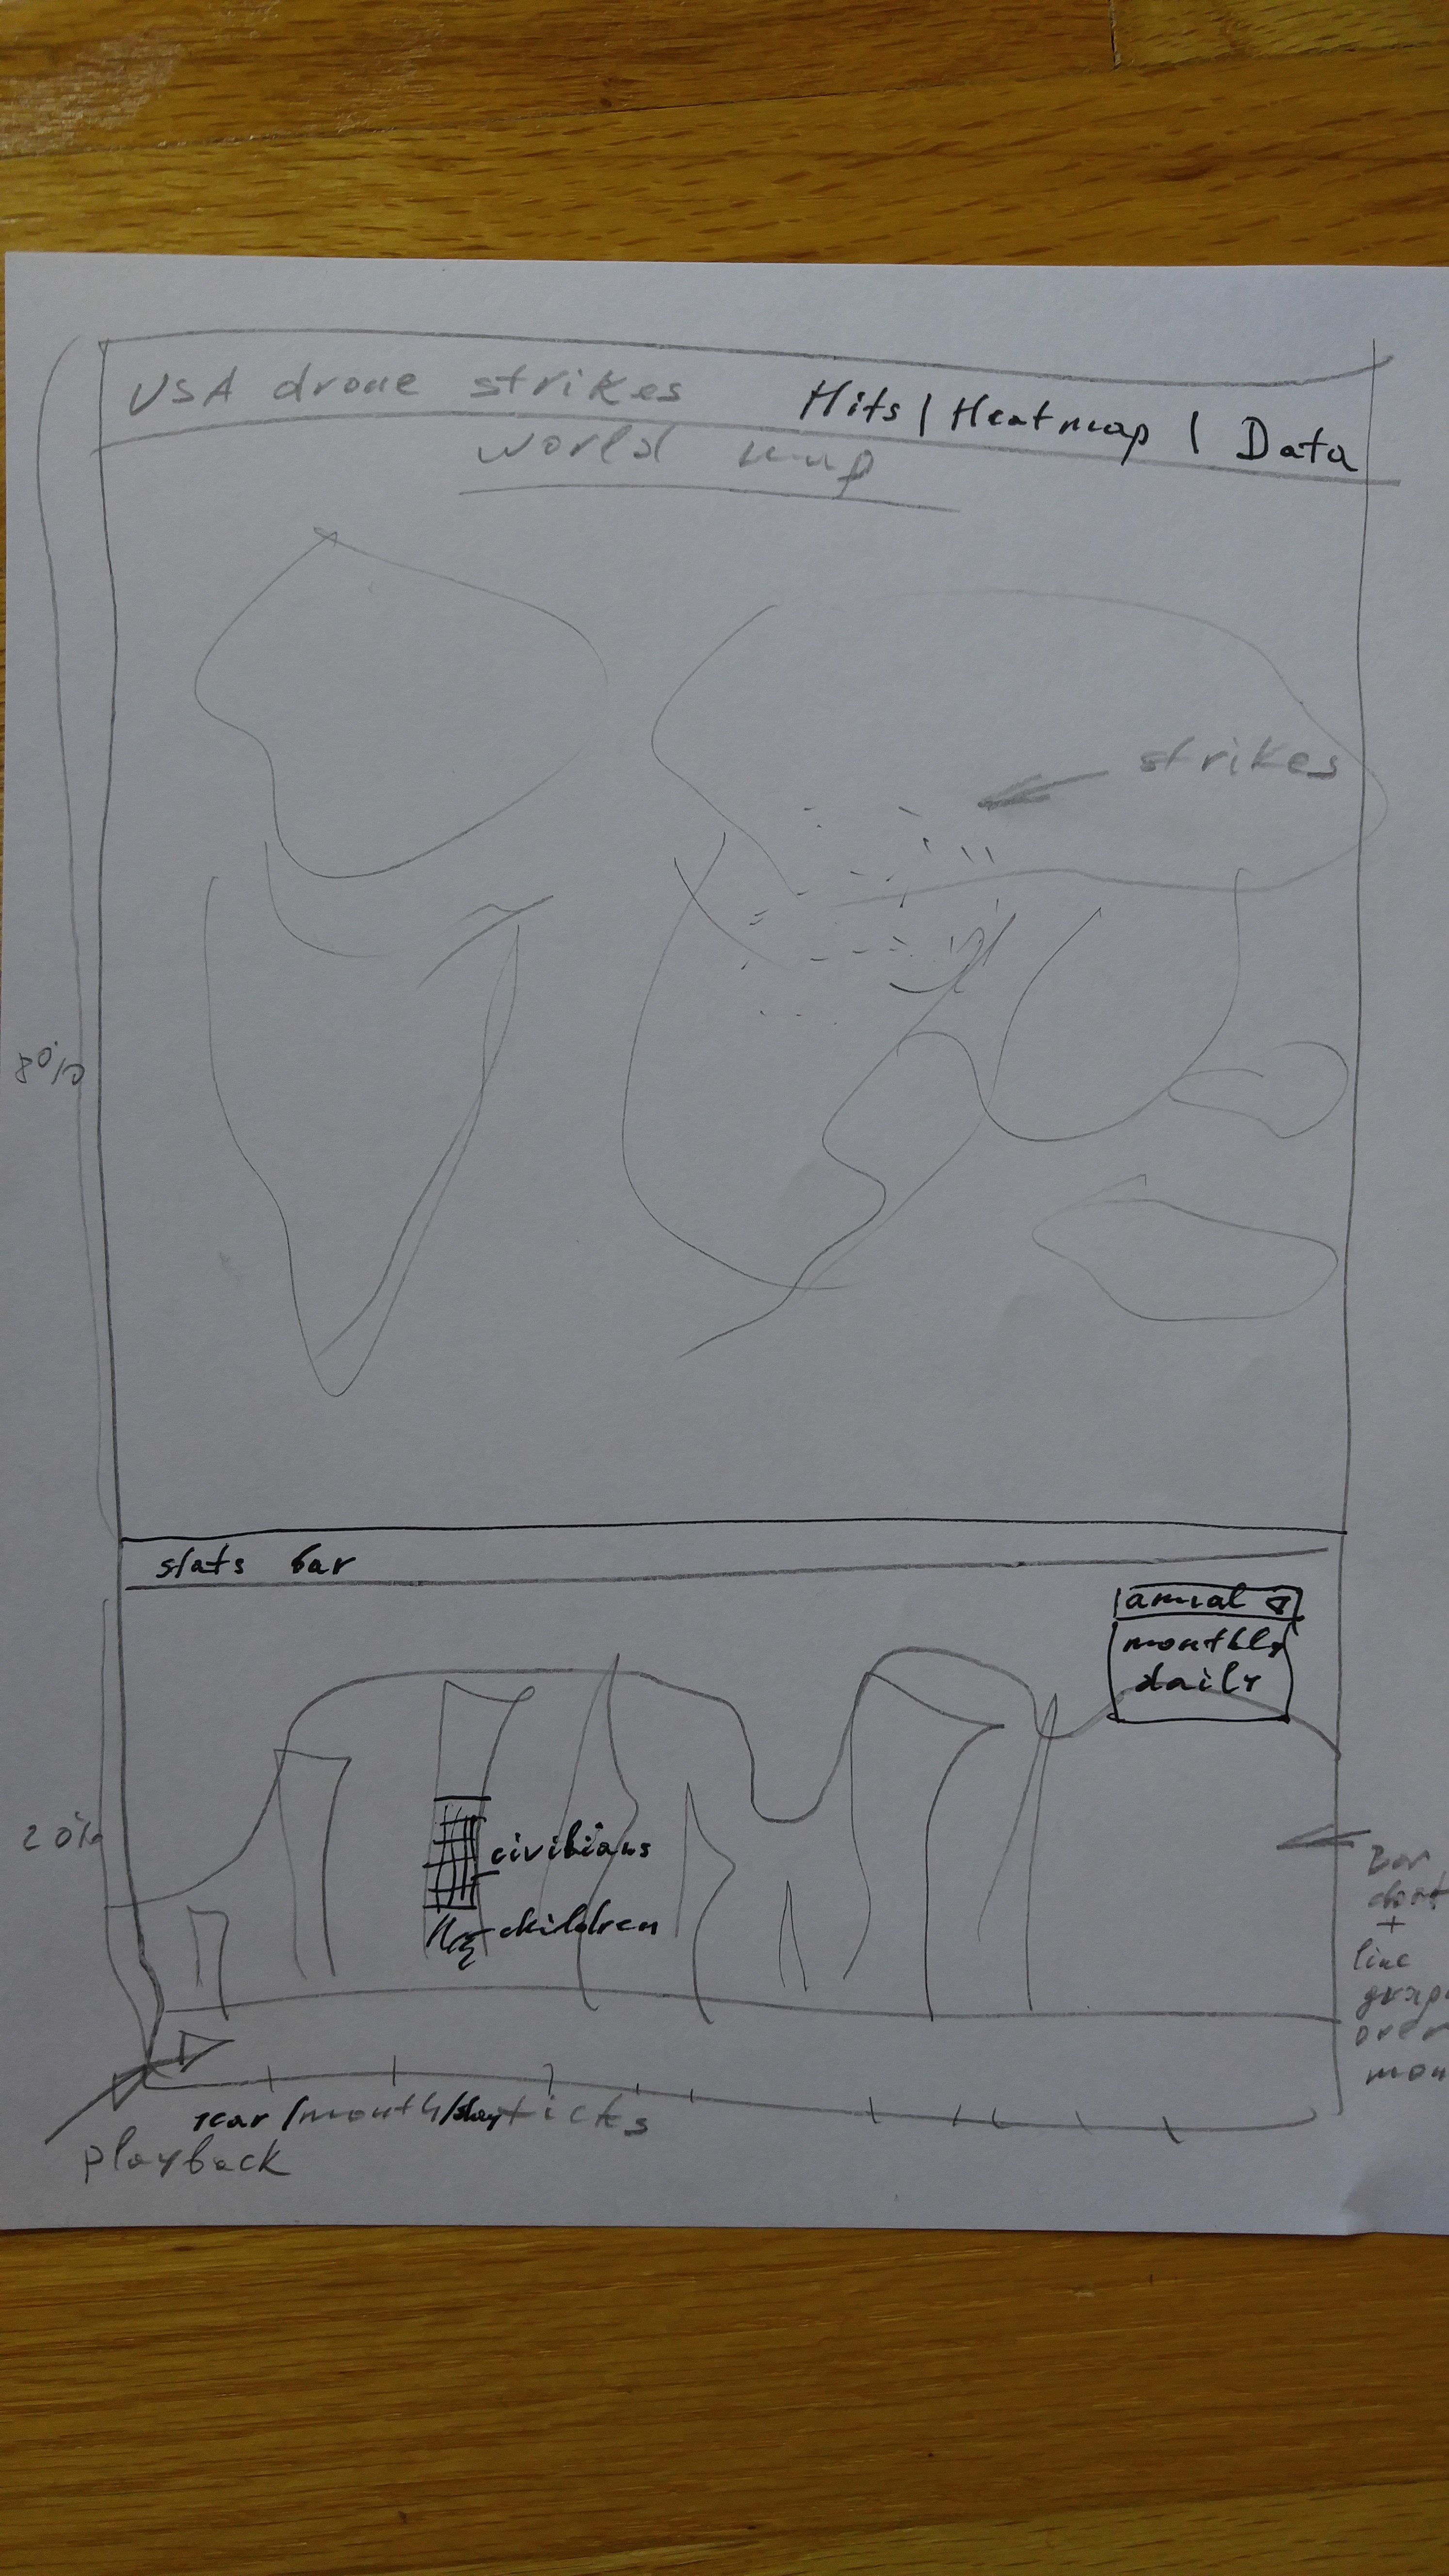 USA drone strikes Hits | Heatmap | Data
world map
strikes
80%
stats bar
annual
monthly
daily
20%
civilians
children
Bar
chart
+
line
grap
over
mon
year/month/day ticks
playback